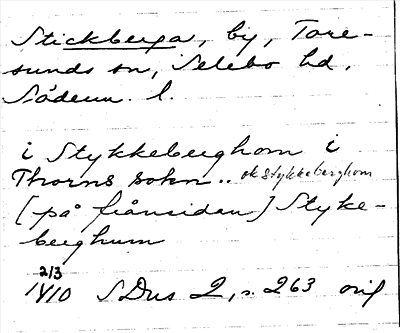 Stickberga, by, Tore-
sunds sn, Selebo hd,
Söderm. l.
i Stykkeberghom i
Thorns sokn .. ok stykkeberghom
[på frånsidan] Styke-
berghum
2/3
1410 SDns 2, s. 263 orig